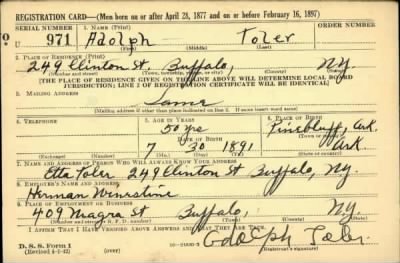 REGISTRATION CARD—(Men born on or after April 28, 1877 and on or before February 16, 1897)
SERIAL NUMBER 1. NAME (Print) ORDER NUMBER
U 971 Adolph Toler
(First) (Middle) (Last)
2. PLACE OF RESIDENCE (Print)
249 Clinton St. Buffalo, N.Y.
(Number and street) (Town, township, village, or city) (County) (State)
[THE PLACE OF RESIDENCE GIVEN ON THE LINE ABOVE WILL DETERMINE LOCAL BOARD
JURISDICTION; LINE 2 OF REGISTRATION CERTIFICATE WILL BE IDENTICAL]
3. MAILING ADDRESS
Same
(Mailing address if other than place indicated on line 2. If same insert word same)
4. TELEPHONE 5. AGE IN YEARS 6. PLACE OF BIRTH
50 yrs Pinebluff, Ark.
DATE OF BIRTH (Town or county)
7 30 1891 Ark.
(Exchange) (Number) (Mo.) (Day) (Yr.) (State or country)
7. NAME AND ADDRESS OF PERSON WHO WILL ALWAYS KNOW YOUR ADDRESS
Etta Toler 249 Clinton St. Buffalo, N.Y.
8. EMPLOYER'S NAME AND ADDRESS
Herman
9. PLACE OF EMPLOYMENT OR BUSINESS
409 St Buffalo, N.Y.
(Number and street or R. F. D. number) (Town) (County) (State)
I AFFIRM THAT I HAVE VERIFIED ABOVE ANSWERS AND THAT THEY ARE TRUE.
D. S. S. Form 1
(Revised 4-1-42) (over) Adolph Toler
(Registrant's signature)